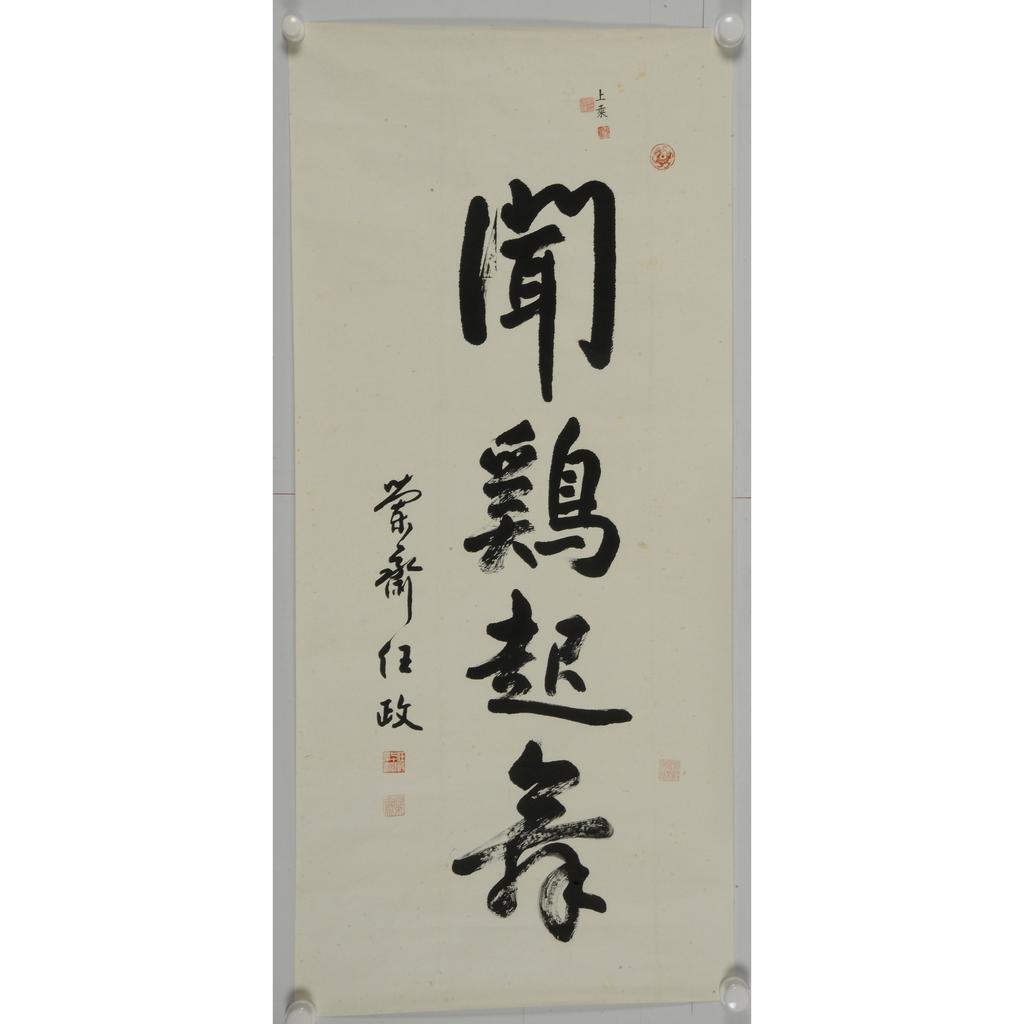 上乘
聞鷄起舞
榮齋任政